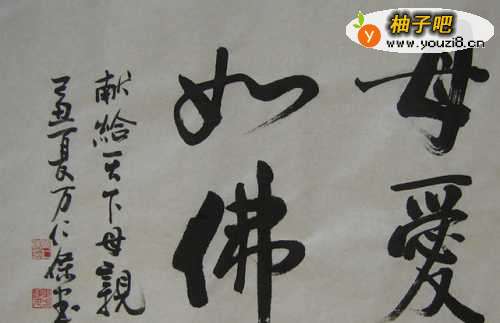 母愛
如佛
献給天下母親
己丑夏万仁保书
柚子吧
www.youzi8.cn